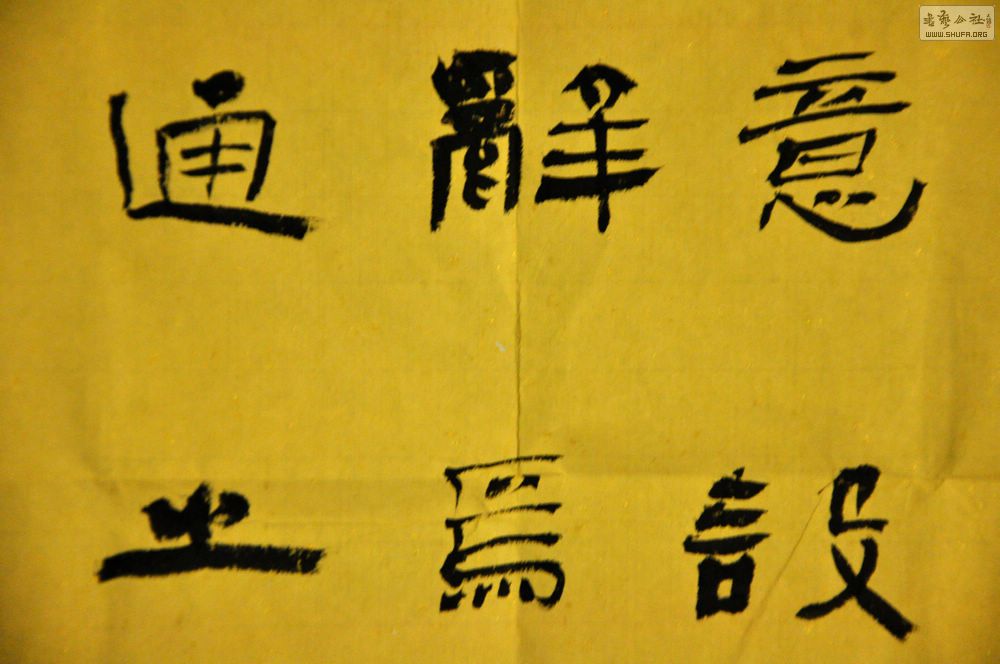 意設
解焉
通之
书艺公社
WWW.SHUFA.ORG